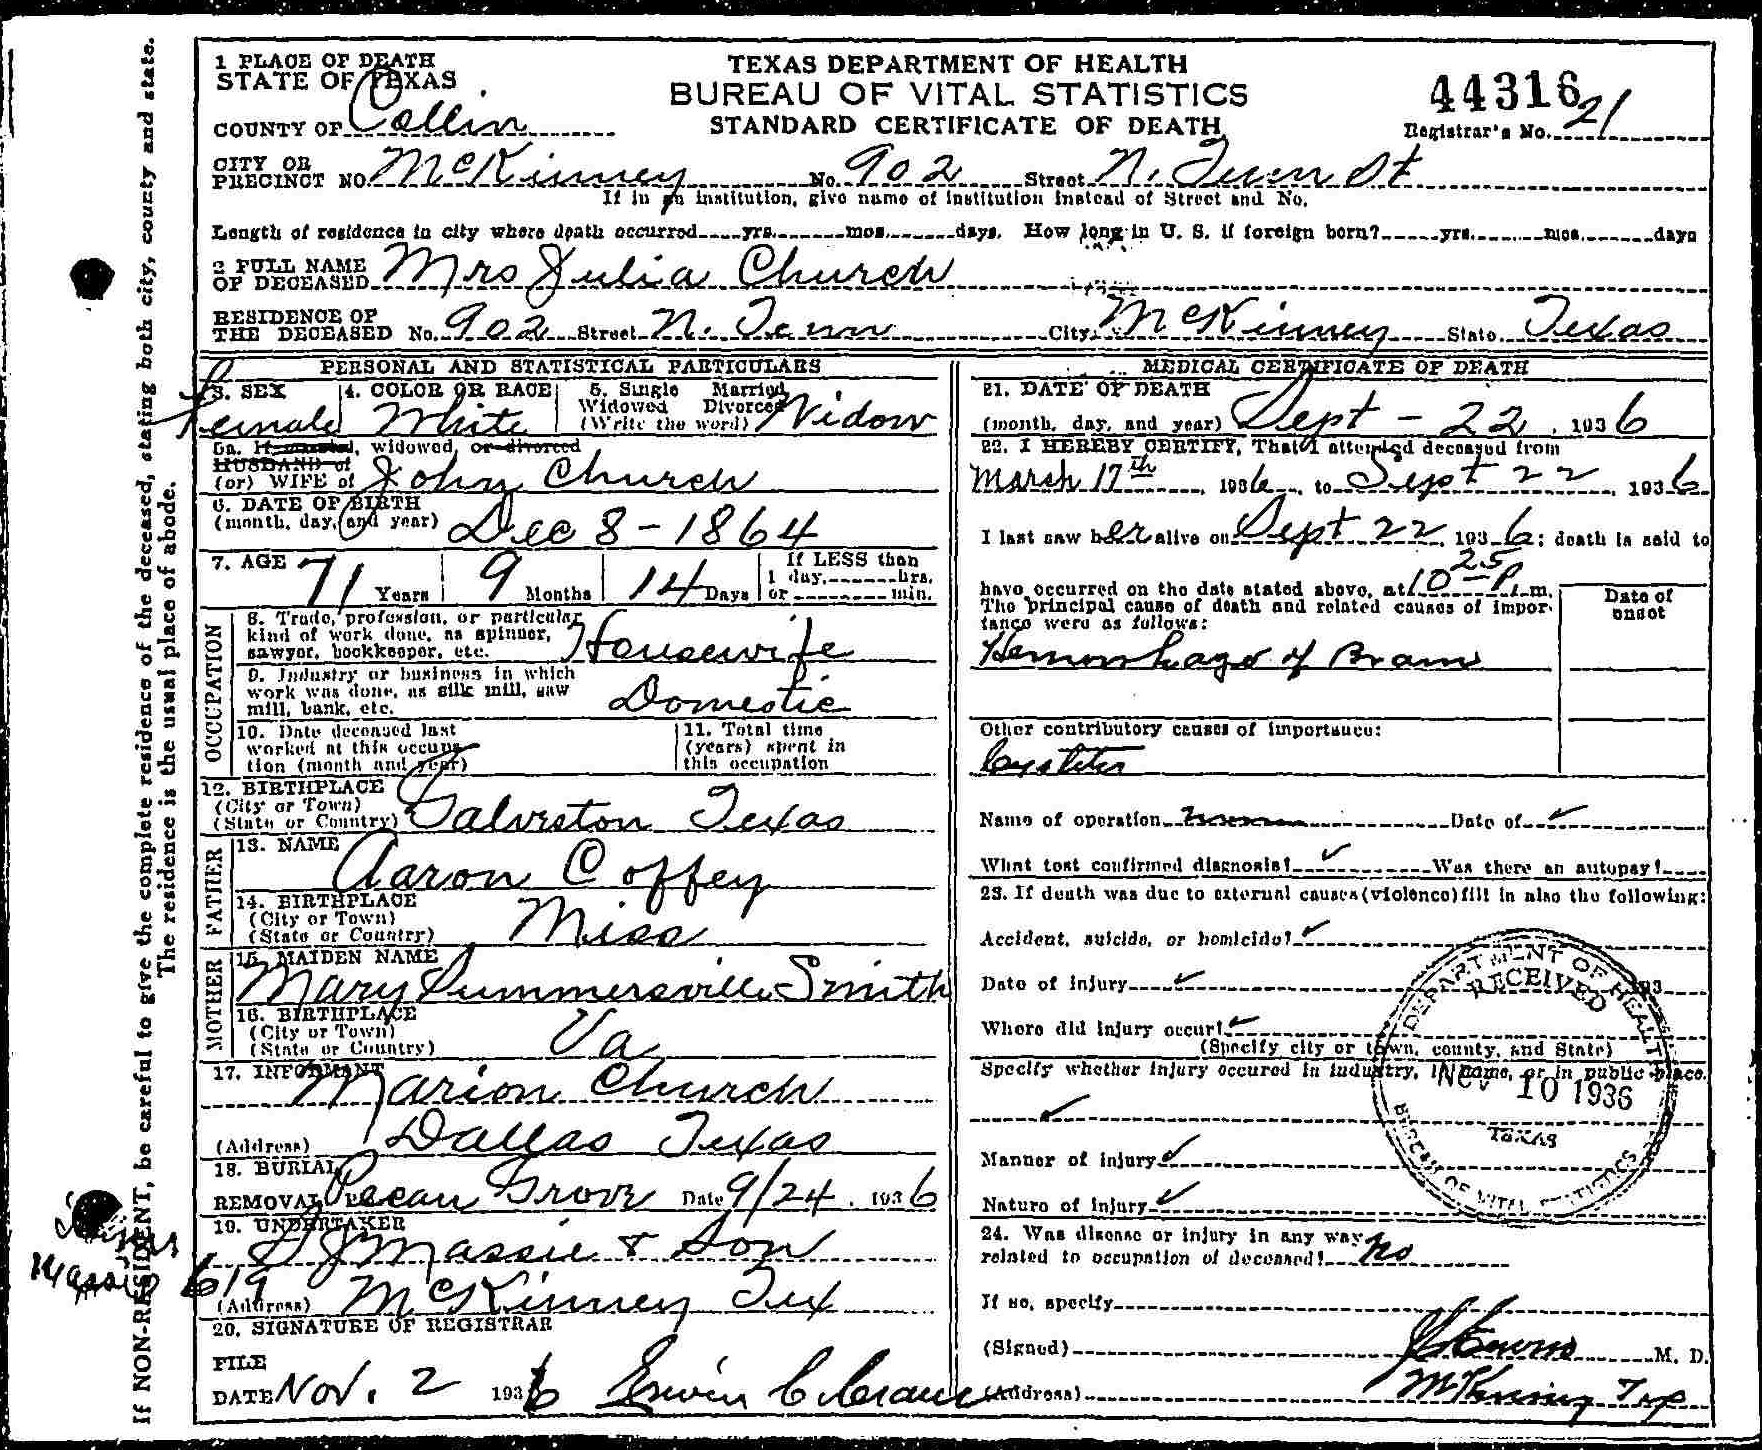 1 PLACE OF DEATH
STATE OF TEXAS
COUNTY OF Collin
TEXAS DEPARTMENT OF HEALTH
BUREAU OF VITAL STATISTICS
STANDARD CERTIFICATE OF DEATH
44316
Registrar's No. 21
CITY OR
PRECINCT NO. McKinney No. 902 Street N. Tenn St
If in an institution, give name of institution instead of Street and No.
Length of residence in city where death occurred yrs. mos. days. How long in U. S. if foreign born? yrs. mos. days
2 FULL NAME
OF DECEASED Mrs Julia Church
RESIDENCE OF
THE DECEASED No. 902 Street N. Tenn City McKinney State Texas
PERSONAL AND STATISTICAL PARTICULARS
3. SEX
Female
4. COLOR OR RACE
White
5. Single Married
Widowed Divorced
(Write the word) Widow
5a. If married, widowed, or divorced
HUSBAND of
(or) WIFE of John Church
6. DATE OF BIRTH
(month, day, and year) Dec 8 - 1864
7. AGE 71 Years 9 Months 14 Days
If LESS than
1 day, hrs.
or min.
OCCUPATION
8. Trade, profession, or particular
kind of work done, as spinner,
sawyer, bookkeeper, etc. Housewife
9. Industry or business in which
work was done, as silk mill, saw
mill, bank, etc. Domestic
10. Date deceased last
worked at this occupa-
tion (month and year)
11. Total time
(years) spent in
this occupation
12. BIRTHPLACE
(City or Town)
(State or Country) Galveston Texas
FATHER
13. NAME
Aaron Coffey
14. BIRTHPLACE
(City or Town)
(State or Country) Miss
MOTHER
15. MAIDEN NAME
Mary Summersville Smith
16. BIRTHPLACE
(City or Town)
(State or Country) Va
17. INFORMANT
Marion Church
(Address) Dallas Texas
18. BURIAL
REMOVAL Pecan Grove Date 9/24, 1936
19. UNDERTAKER
Massie & Son
Massie 619
(Address) McKinney Tex
20. SIGNATURE OF REGISTRAR
FILE
DATE Nov. 2 1936
MEDICAL CERTIFICATE OF DEATH
21. DATE OF DEATH
(month, day, and year) Sept - 22, 1936
22. I HEREBY CERTIFY, That I attended deceased from
March 17th, 1936, to Sept 22, 1936
I last saw her alive on Sept 22, 1936; death is said to
have occurred on the date stated above, at 10 25 P. m.
The principal cause of death and related causes of impor-
tance were as follows:
Date of
onset
Hemorrhage of Brain
Other contributory causes of importance:
Cystitis
Name of operation Date of ✓
What test confirmed diagnosis? ✓ Was there an autopsy?
23. If death was due to external causes (violence) fill in also the following:
Accident, suicide, or homicide? ✓
Date of injury ✓ 193
Where did injury occur? ✓
(Specify city or town, county, and State)
Specify whether injury occured in industry, in home, or in public place.
✓
Manner of injury ✓
Nature of injury ✓
24. Was disease or injury in any way
related to occupation of deceased? No
If so, specify
(Signed) M. D.
(Address) McKinney Tex
DEPARTMENT OF HEALTH
RECEIVED
NOV 10 1936
TEXAS
BUREAU OF VITAL STATISTICS
If NON-RESIDENT, be careful to give the complete residence of the deceased, stating both city, county and state.
The residence is the usual place of abode.